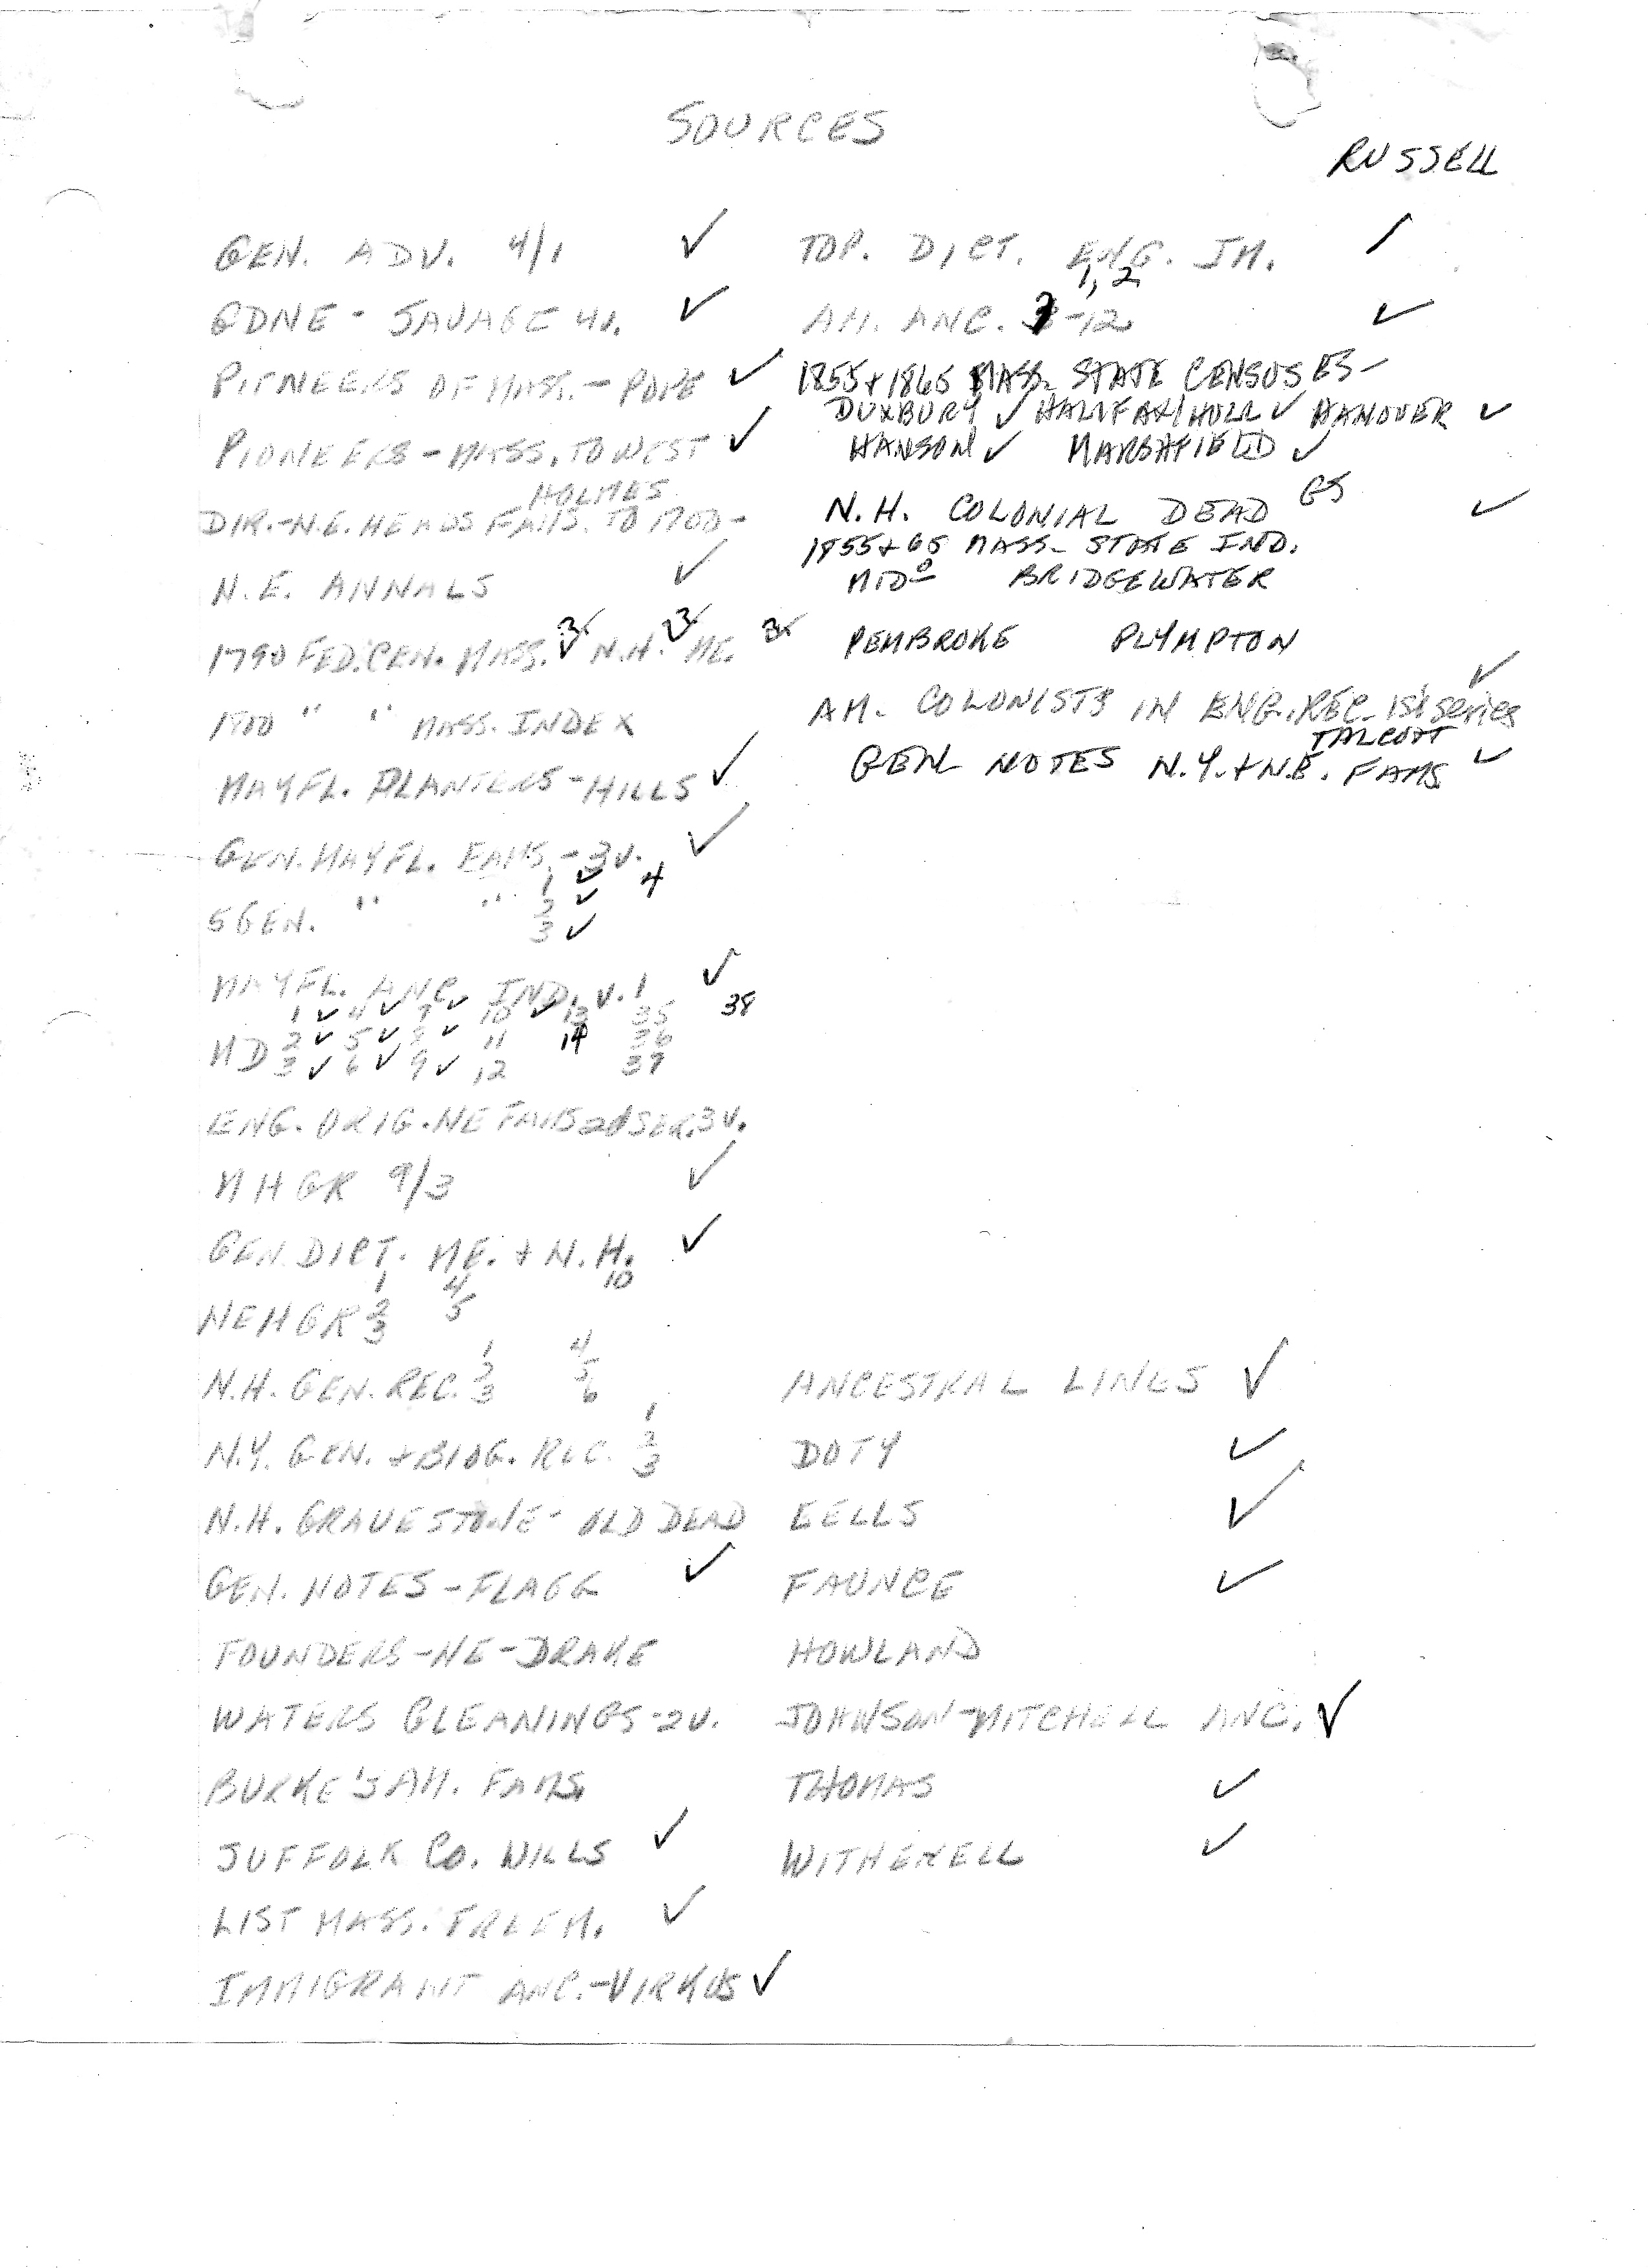 SOURCES
RUSSELL
GEN. ADV. 4/1 ✓
GDNE - SAVAGE 4v. ✓
PIONEERS OF MASS. - POPE ✓
PIONEERS - MASS. TO WEST ✓
HOLMES
DIR. - N.E. HEADS FAMS. TO 1700 -
N.E. ANNALS ✓
1790 FED. CEN. MASS. ✓ N.H. ME.
1900 " " MASS. INDEX
MAYFL. PLANTERS - HILLS ✓
GEN. MAYFL. FAMS. - 3v. ✓
1 ✓ 4
5 GEN. " " 2 ✓
3 ✓
MAYFL. ANC. IND. v. 1 ✓
1 ✓ 4 ✓ 7 ✓ 10 ✓ 13 35 38
MD 2 ✓ 5 ✓ 8 ✓ 11 14 36
3 ✓ 6 ✓ 9 ✓ 12 37
ENG. ORIG. NE FAMS 2d SER. 3v.
MHGR 9/3 ✓
GEN. DICT. ME. + N.H. ✓
1 4 10
NEHGR 2 5
3
1 4
N.H. GEN. REC. 2 5
3 6
1
N.Y. GEN. + BIOG. REC. 2
3
N.H. GRAVESTONE - OLD DEAD
GEN. NOTES - FLAGG ✓
FOUNDERS - NE - DRAKE
WATERS GLEANINGS - 2v.
BURKE'S AM. FAMS.
SUFFOLK CO. WILLS ✓
LIST MASS. FREEM. ✓
IMMIGRANT ANC. - VIRKUS ✓
TOP. DICT. ENG. /
1, 2
AM. ANC. -12 ✓
1855 + 1865 MASS. STATE CENSUSES -
DUXBURY ✓ HALIFAX/HULL ✓ HANOVER ✓
HANSON ✓ MARSHFIELD ✓
N.H. COLONIAL DEAD GS ✓
1855 + 65 MASS. STATE IND.
MIDº BRIDGEWATER
PEMBROKE PLYMPTON
AM. COLONISTS IN ENG. REC. 1st series ✓
TALCOTT
GEN NOTES N.Y. + N.E. FAMS ✓
ANCESTRAL LINES ✓
DOTY ✓
EELLS ✓
FAUNCE ✓
HOWLAND
JOHNSON-MITCHELL ANC. ✓
THOMAS ✓
WITHERELL ✓